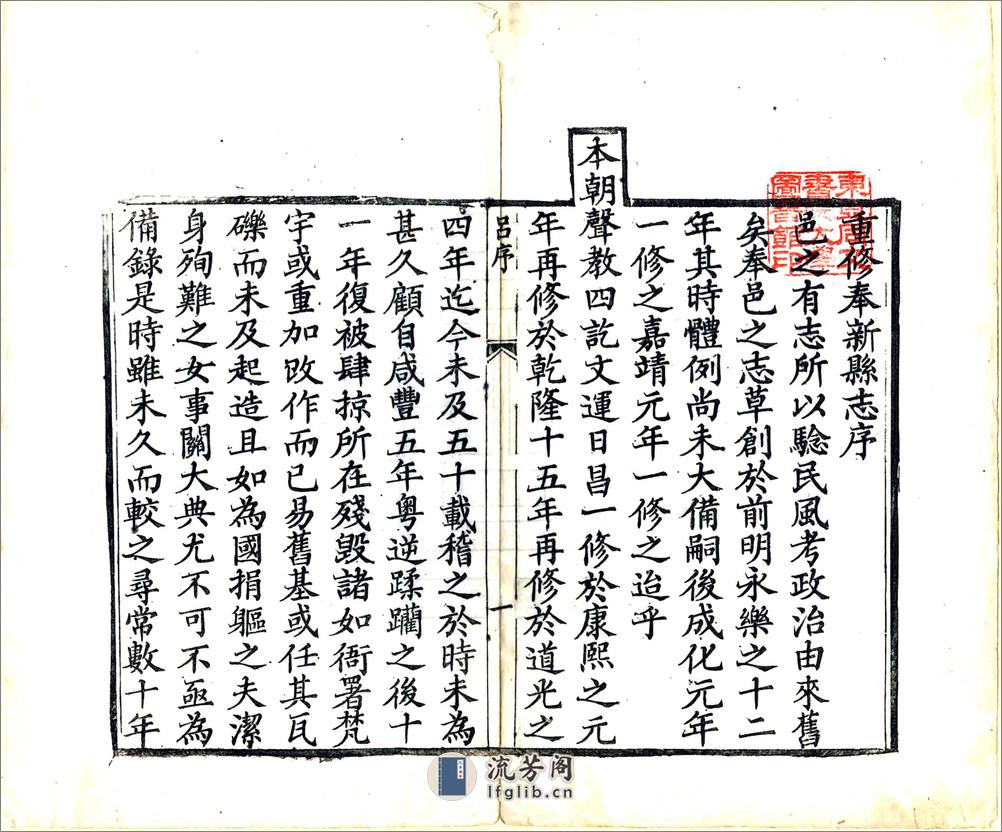 重修奉新縣志序
邑之有志所以騐民風考政治由來舊
矣奉邑之志草創於前明永樂之十二
年其時體例尚未大備嗣後成化元年
一修之嘉靖元年一修之迨乎
本朝聲教四訖文運日昌一修於康熙之元
年再修於乾隆十五年再修於道光之
呂序
一
四年迄今未及五十載稽之於時未為
甚久顧自咸豐五年粵逆蹂躪之後十
一年復被肆掠所在殘毀諸如衙署梵
宇或重加改作而已易舊基或任其瓦
礫而未及起造且如為國捐軀之夫潔
身殉難之女事關大典尤不可不亟為
備錄是時雖未久而較之尋常數十年
流芳阁
lfglib.cn